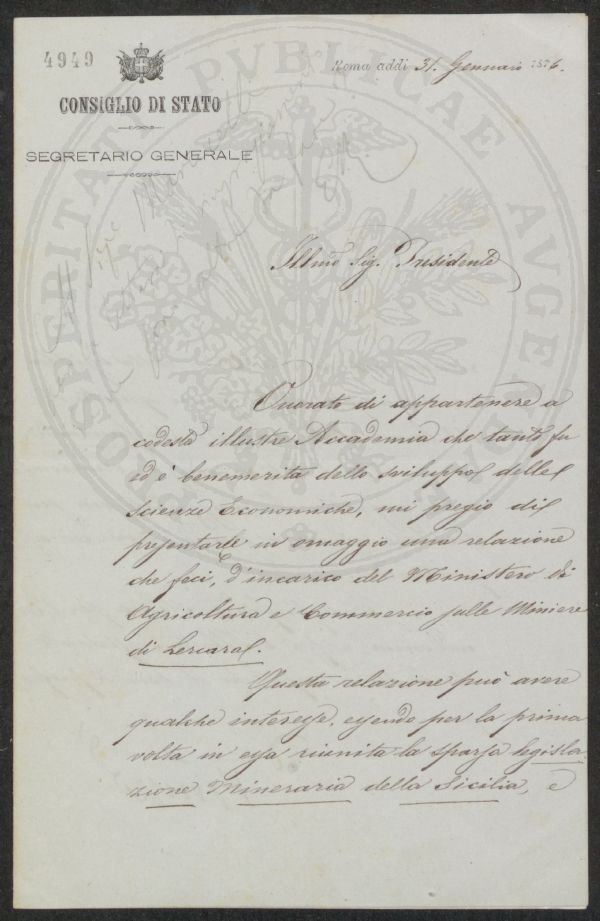 4949
Roma addì 31. Gennaio 1876.
CONSIGLIO DI STATO
SEGRETARIO GENERALE
Illmo Sig. Presidente
Onorato di appartenere a
codesta illustre Accademia che tanto fu
ed è benemerita dello sviluppo delle
Scienze Economiche, mi pregio di
presentarle in omaggio una relazione
che feci, d'incarico del Ministero di
Agricoltura e Commercio sulle Miniere
di Lercara.
Questa relazione può avere
qualche interesse, essendo per la prima
volta in essa riunita la sparsa legisla
zione Mineraria della Sicilia, e
PROSPERITATI PUBLICAE AUGENDAE